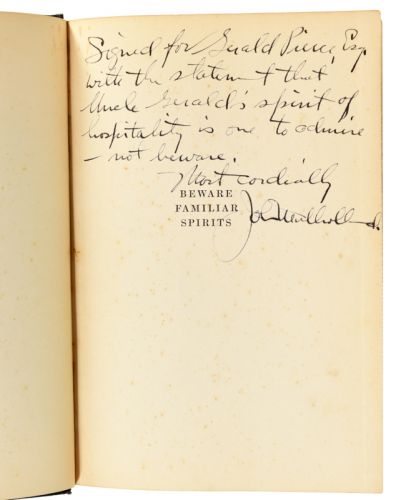 Signed for Gerald Pierce, Esq
with the statement that
Uncle Gerald's spirit of
hospitality is one to admire
– not beware.
Most cordially
BEWARE
FAMILIAR
SPIRITS
John Mulholland.